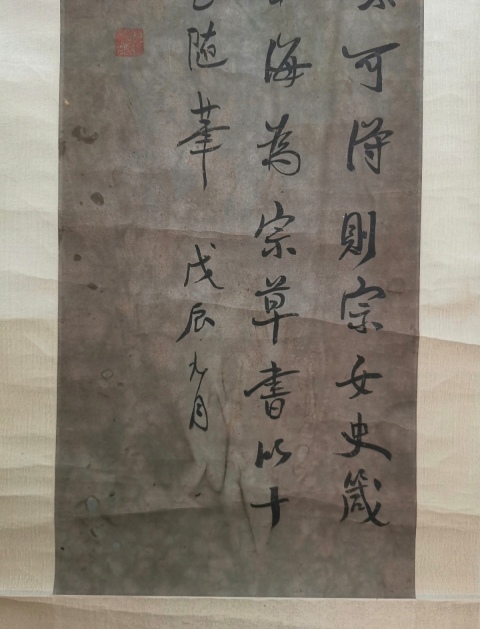 可得則宗女史箴
海為宗草書以十
隨筆 戊辰九月